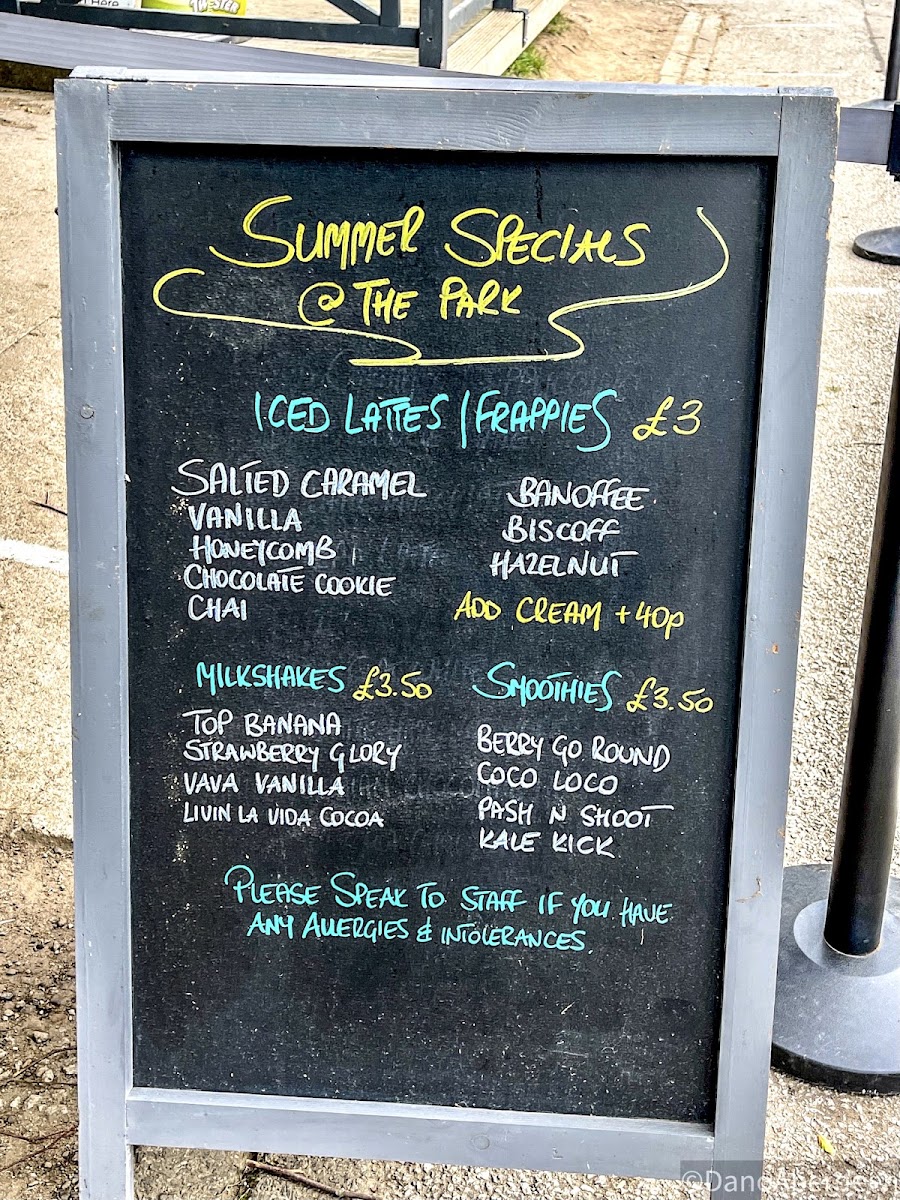 TWISTER
SUMMER SPECIALS
@ THE PARK
ICED LATTES / FRAPPIES £3
SALTED CARAMEL
VANILLA
HONEYCOMB
CHOCOLATE COOKIE
CHAI
BANOFFEE
BISCOFF
HAZELNUT
ADD CREAM +40p
MILKSHAKES £3.50
TOP BANANA
STRAWBERRY GLORY
VAVA VANILLA
LIVIN LA VIDA COCOA
SMOOTHIES £3.50
BERRY GO ROUND
COCO LOCO
PASH N SHOOT
KALE KICK
PLEASE SPEAK TO STAFF IF YOU HAVE
ANY ALLERGIES & INTOLERANCES.